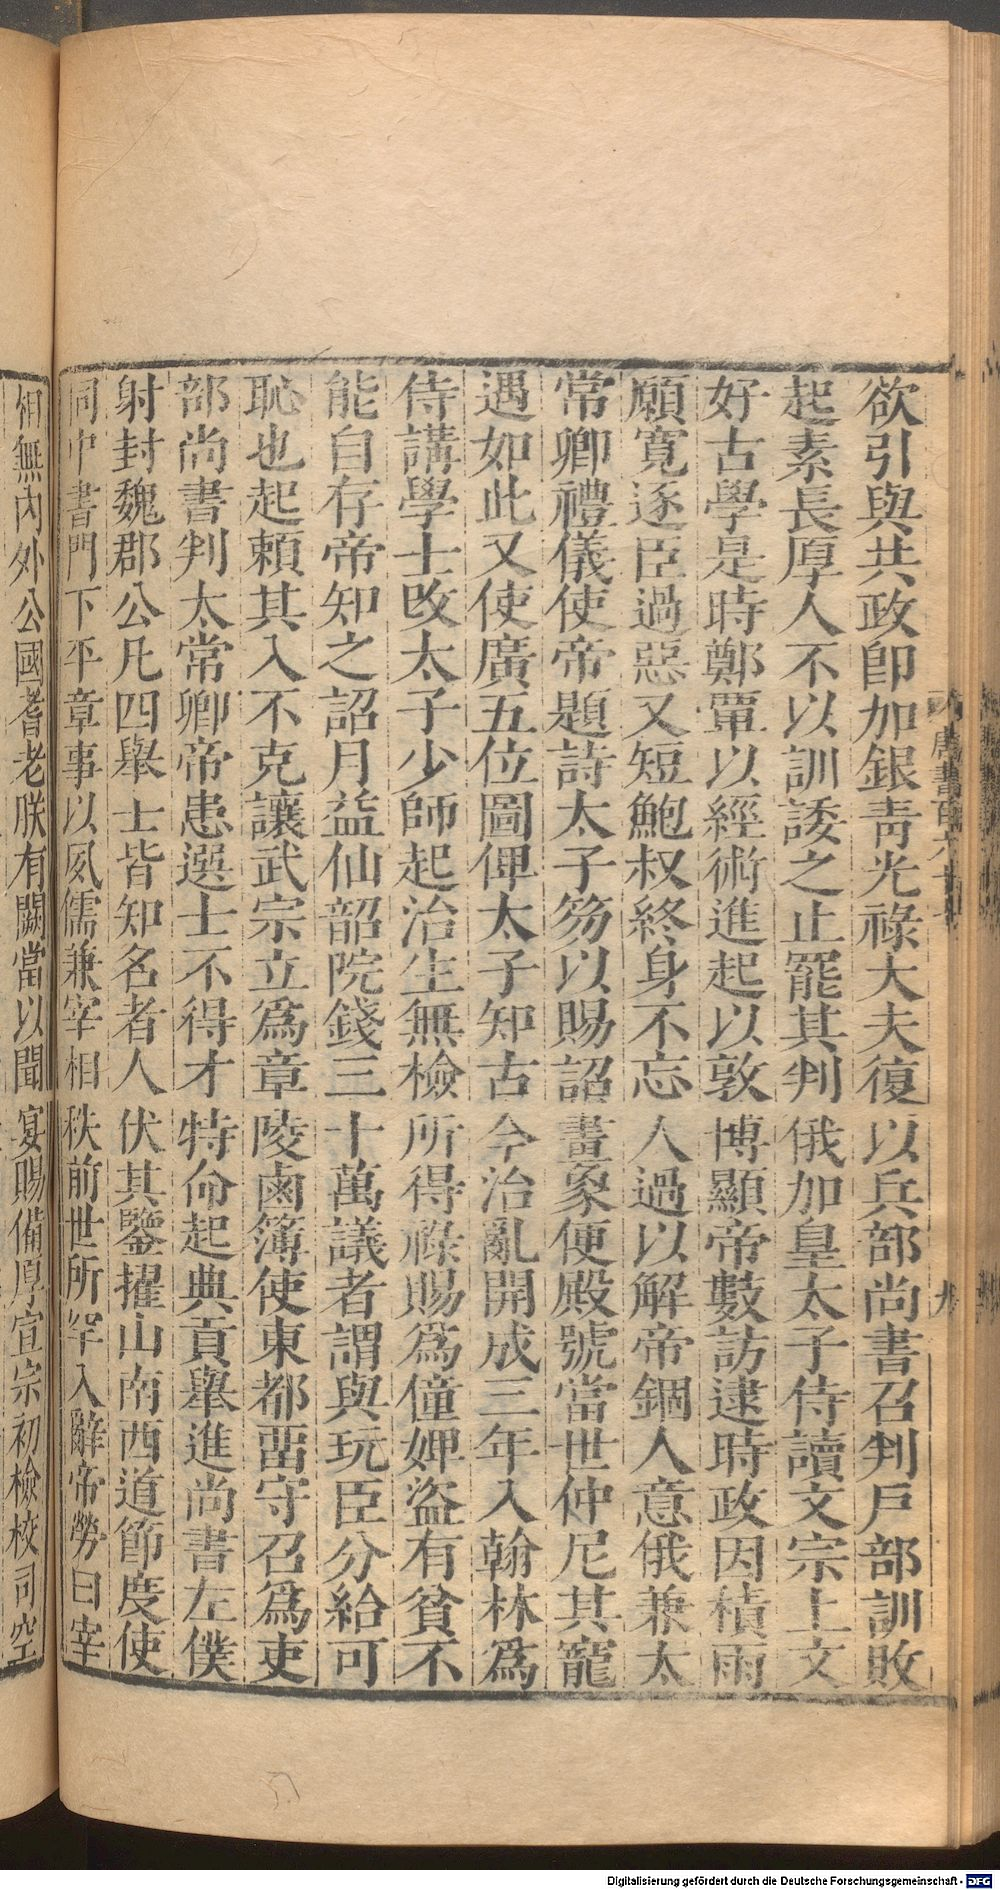 欲引與共政卽加銀靑光祿大夫復以兵部尚書召判戶部訓敗
起素長厚人不以訓諉之止罷其判俄加皇太子侍讀文宗上文
好古學是時鄭覃以經術進起以敦博顯帝數訪逮時政因積雨
願寬逐臣過惡又短鮑叔終身不忘人過以解帝錮人意俄兼太
常卿禮儀使帝題詩太子笏以賜詔畫象便殿號當世仲尼其寵
遇如此又使廣五位圖俾太子知古今治亂開成三年入翰林爲
侍講學士改太子少師起治生無檢所得祿賜爲僮婢盜有貧不
能自存帝知之詔月益仙韶院錢三十萬議者謂與玩臣分給可
恥也起賴其入不克讓武宗立爲章陵鹵簿使東都畱守召爲吏
部尚書判太常卿帝患選士不得才特命起典貢舉進尚書左僕
射封魏郡公凡四舉士皆知名者人伏其鑒擢山南西道節度使
同中書門下平章事以夙儒兼宰相秩前世所罕入辭帝勞曰宰
相無內外公國耆老朕有闕當以聞宴賜備厚宣宗初檢校司空
唐書百六十七
九
Digitalisierung gefördert durch die Deutsche Forschungsgemeinschaft - DFG